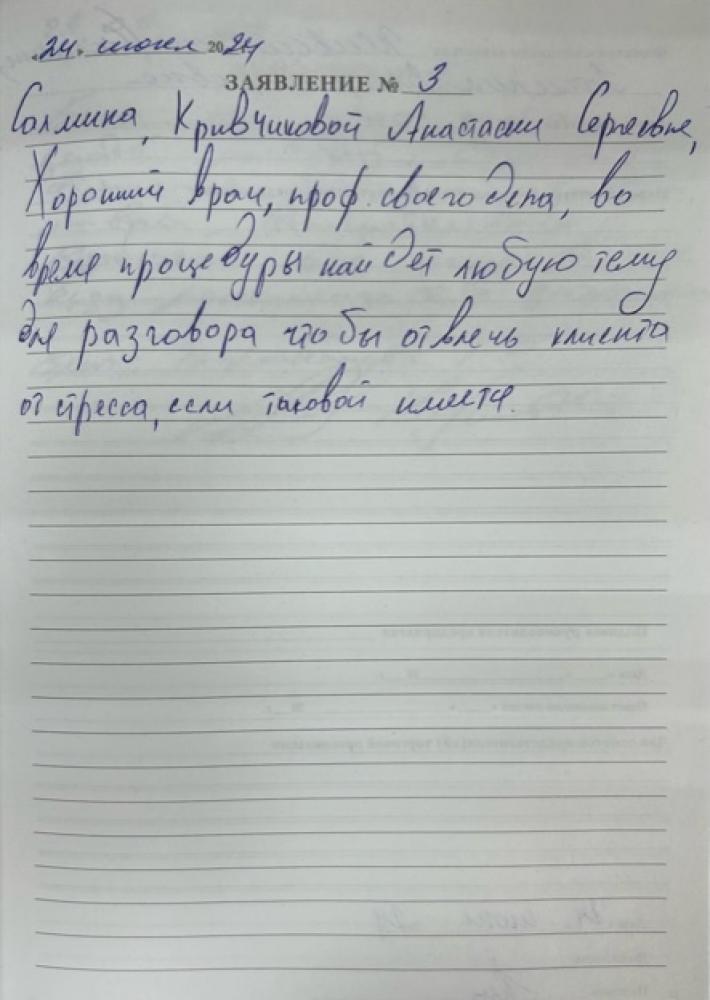 24. июня 2024
ЗАЯВЛЕНИЕ № 3
Кривчиковой Анастасии Сергеевне,
Хороший врач, проф. своего дела, во
время процедуры найдет любую тему
для разговора что бы отвлечь клиента
от стресса, если таковой имеется.